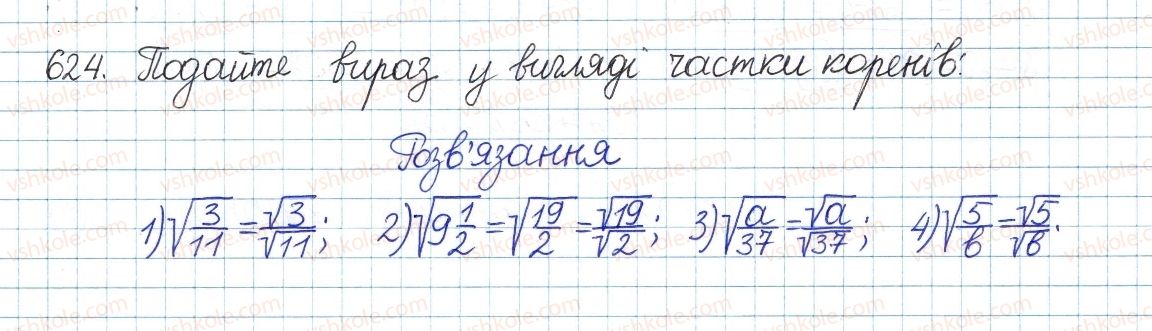 624. Подайте вираз у вигляді частки коренів:
Розв'язання
1) √(3/11) = √3/√11; 2) √(9 1/2) = √(19/2) = √19/√2; 3) √(a/37) = √a/√37; 4) √(5/в) = √5/√в.